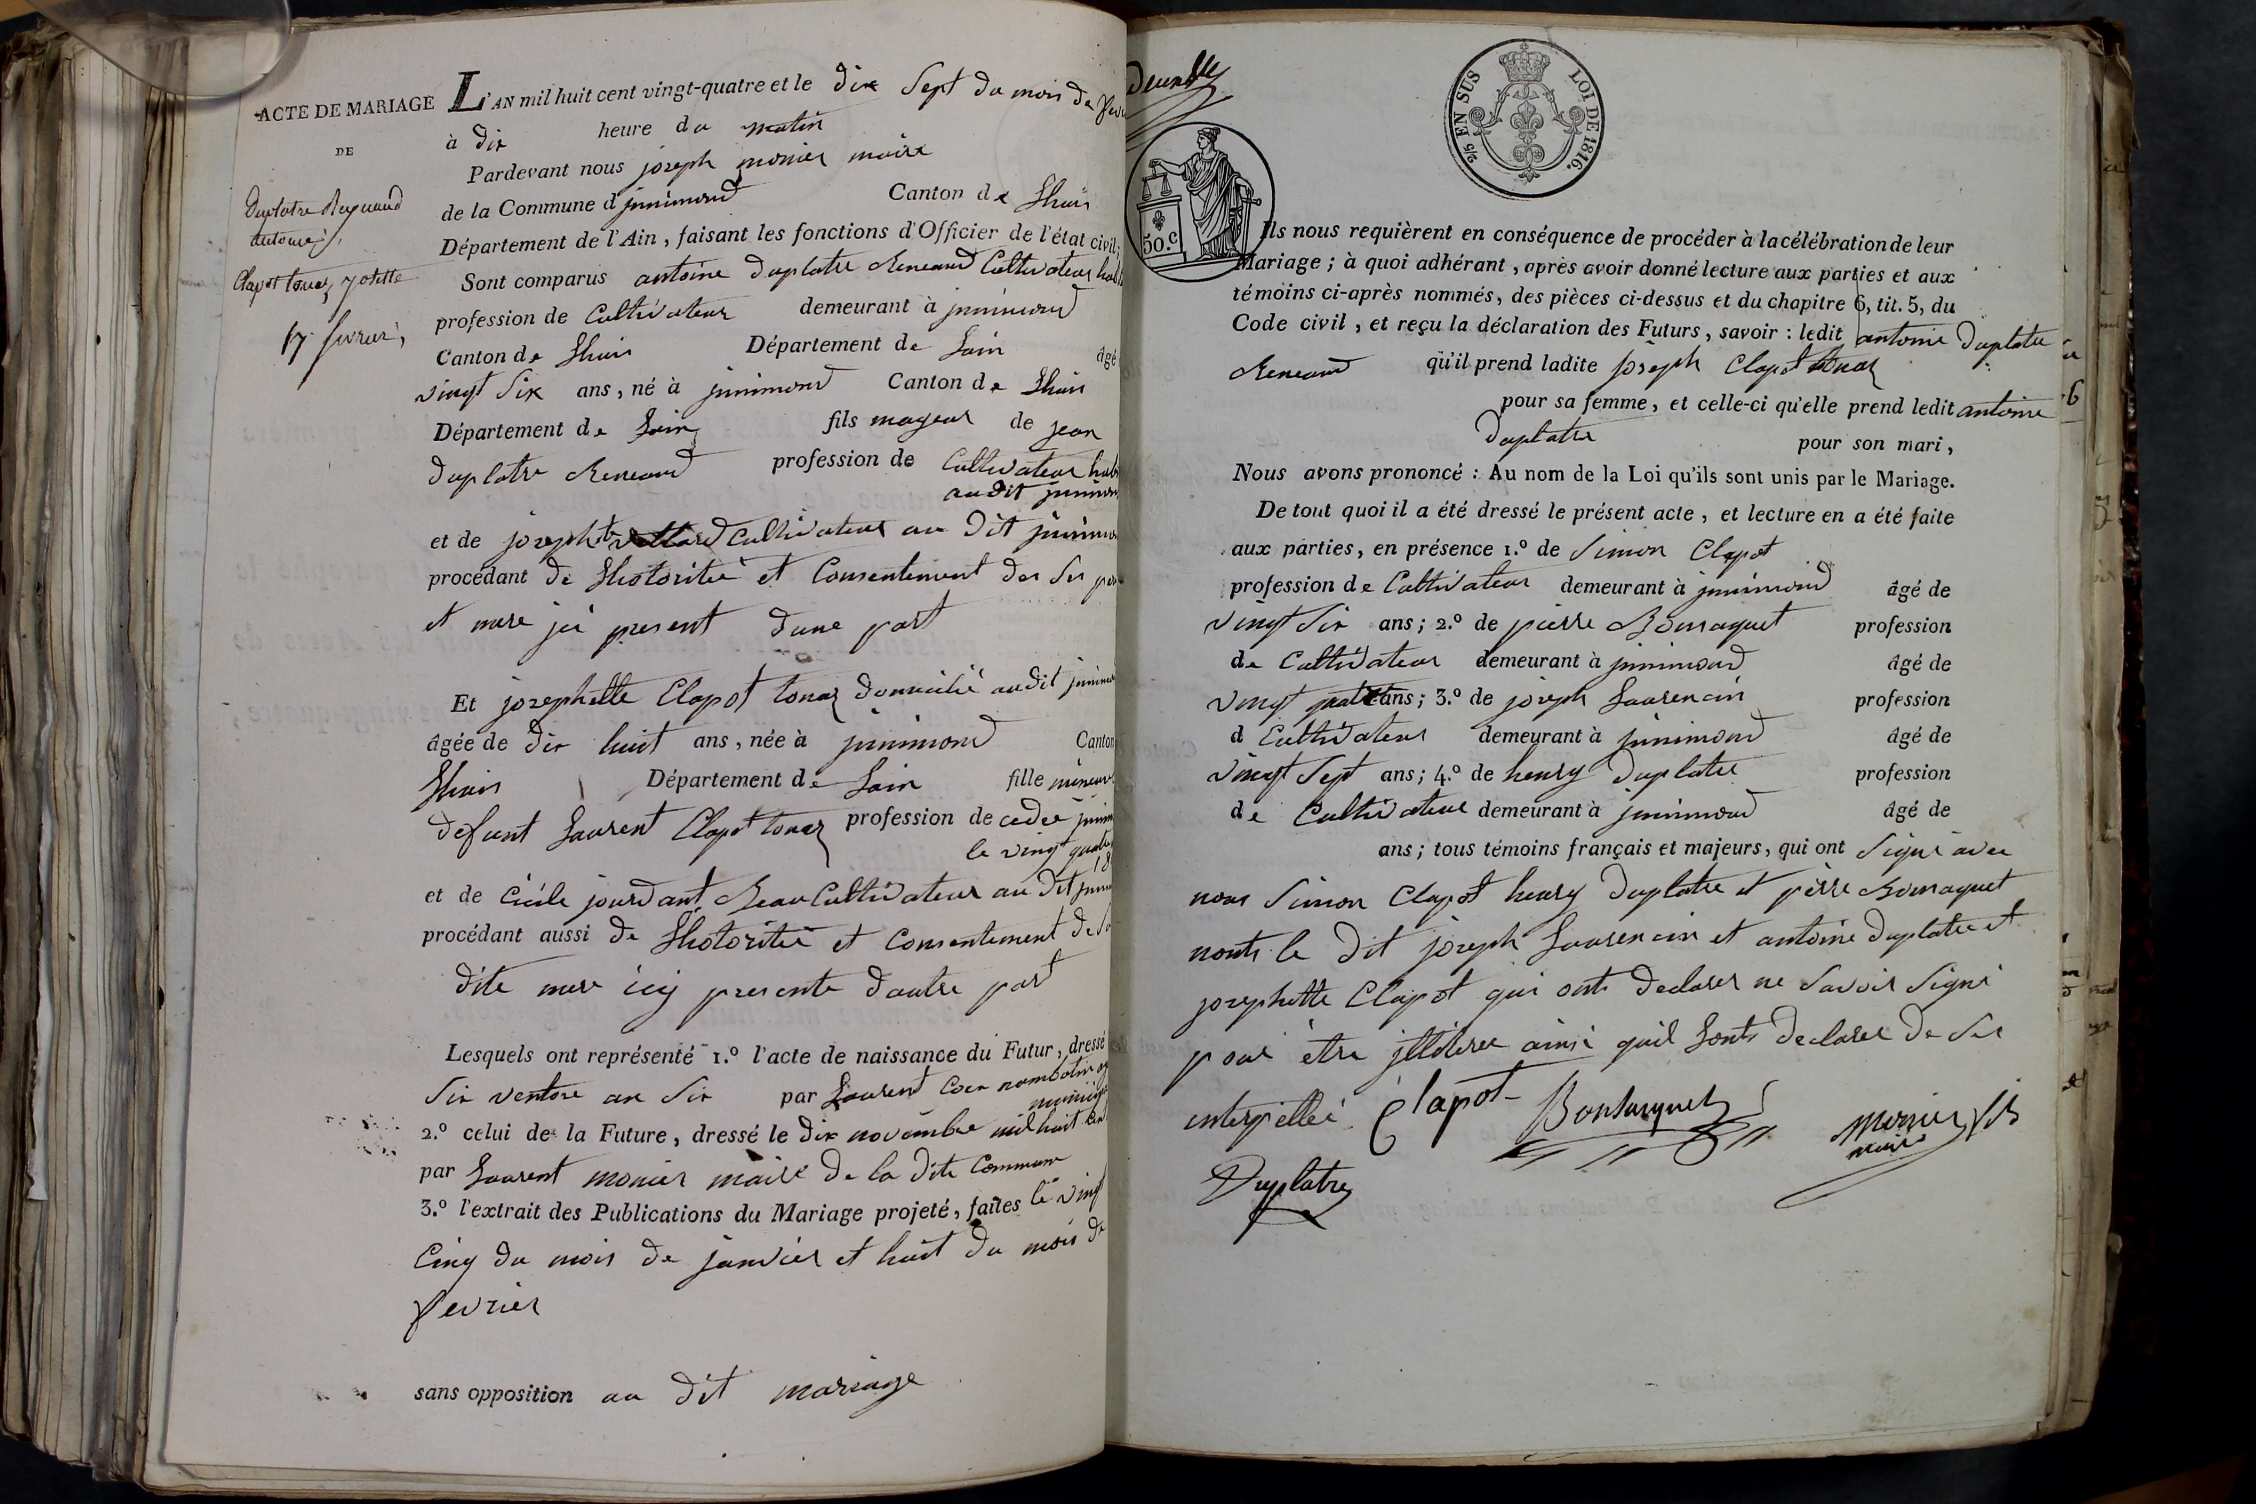 ACTE DE MARIAGE
DE
Duplatre Reynaud
antoine
Clapot tonaz josette
17 fevrier
L'AN mil huit cent vingt-quatre et le dix Sept du mois de
à dix heure du matin
Pardevant nous joseph monier maire
de la Commune d'innimond Canton de Lhuis
Département de l'Ain, faisant les fonctions d'Officier de l'état civil;
Sont comparus antoine Duplatre Reneaud Cultivateur
profession de Cultivateur demeurant à innimond
Canton de Lhuis Département de Lain âgé
vingt Six ans, né à innimond Canton de Lhuis
Département de Lain fils mageur de jean
Duplatre Reneaud profession de Cultivateur
au dit
et de joseph Cultivateur au Dit
procédant de Lhotoritée et Consentement des Ses
et mere ici present Dune part
Et josephette Clapot tonaz Domicilié au dit
âgée de Dix huit ans, née à innimond Canton
Lhuis Département de Lain fille mineure
Defunt Laurent Clapot tonaz profession de
le vingt quatre
18
et de Cécile jourdant Cultivateur au Dit
procédant aussi de Lhotoritée et Consentement De
Dite mere icy presente Dautre part
Lesquels ont représenté 1.º l'acte de naissance du Futur, dressé
Six ventose an Six par Laurent
2.º celui de la Future, dressé le Dix novembre mil huit Cent
par Laurent monier maire De la Dite Commune
3.º l'extrait des Publications du Mariage projeté, faites le vingt
Cinq du mois de janvier et huit Du mois de
fevrier
sans opposition au Dit mariage
2/5 EN SUS
LOI DE 1816.
50.c
Ils nous requièrent en conséquence de procéder à la célébration de leur
Mariage; à quoi adhérant, après avoir donné lecture aux parties et aux
témoins ci-après nommés, des pièces ci-dessus et du chapitre 6, tit. 5, du
Code civil, et reçu la déclaration des Futurs, savoir: ledit antoine Duplatre
Reneaud qu'il prend ladite joseph Clapot tonaz
pour sa femme, et celle-ci qu'elle prend ledit antoine
Duplatre pour son mari,
Nous avons prononcé: Au nom de la Loi qu'ils sont unis par le Mariage.
De tout quoi il a été dressé le présent acte, et lecture en a été faite
aux parties, en présence 1.º de Simon Clapot
profession de Cultivateur demeurant à innimond âgé de
vingt Six ans; 2.º de pierre Bonsaquet profession
de Cultivateur demeurant à innimond âgé de
vingt quatre ans; 3.º de joseph Laurencin profession
d Cultivateur demeurant à innimond âgé de
vingt Sept ans; 4.º de henry Duplatre profession
de Cultivateur demeurant à innimond âgé de
ans; tous témoins français et majeurs, qui ont Signé avec
nous Simon Clapot henry Duplatre et pierre Bonsaquet
nonts le Dit joseph Laurencin et antoine Duplatre et
josephette Clapot qui onts Declarer ne Savoir Signé
pour être jlitéree ainsi quil Lonts Declarer De Ses
interpellée Clapot Bonsaquet Monier
maire
Duplatre